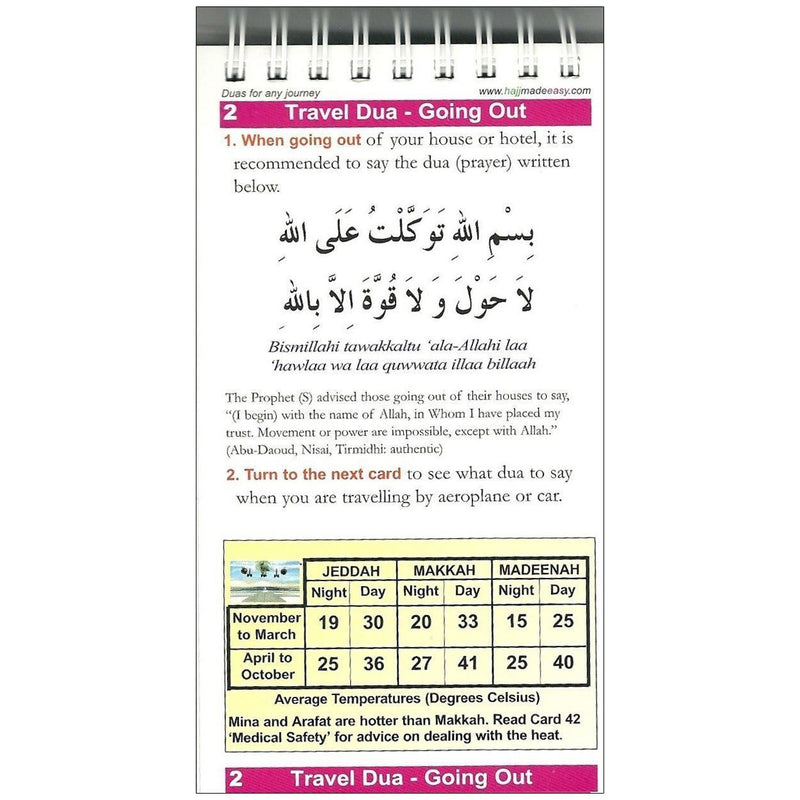 Duas for any journey www.hajjmadeeasy.com
2 Travel Dua - Going Out
1. When going out of your house or hotel, it is
recommended to say the dua (prayer) written
below.
بِسْمِ اللهِ تَوَكَّلْتُ عَلَى اللهِ
لاَ حَوْلَ وَ لاَ قُوَّةَ اِلاَّ بِاللهِ
Bismillahi tawakkaltu ‘ala-Allahi laa
‘hawlaa wa laa quwwata illaa billaah
The Prophet (S) advised those going out of their houses to say,
“(I begin) with the name of Allah, in Whom I have placed my
trust. Movement or power are impossible, except with Allah.”
(Abu-Daoud, Nisai, Tirmidhi: authentic)
2. Turn to the next card to see what dua to say
when you are travelling by aeroplane or car.
JEDDAH MAKKAH MADEENAH
Night Day Night Day Night Day
November
to March 19 30 20 33 15 25
April to
October 25 36 27 41 25 40
Average Temperatures (Degrees Celsius)
Mina and Arafat are hotter than Makkah. Read Card 42
‘Medical Safety’ for advice on dealing with the heat.
2 Travel Dua - Going Out